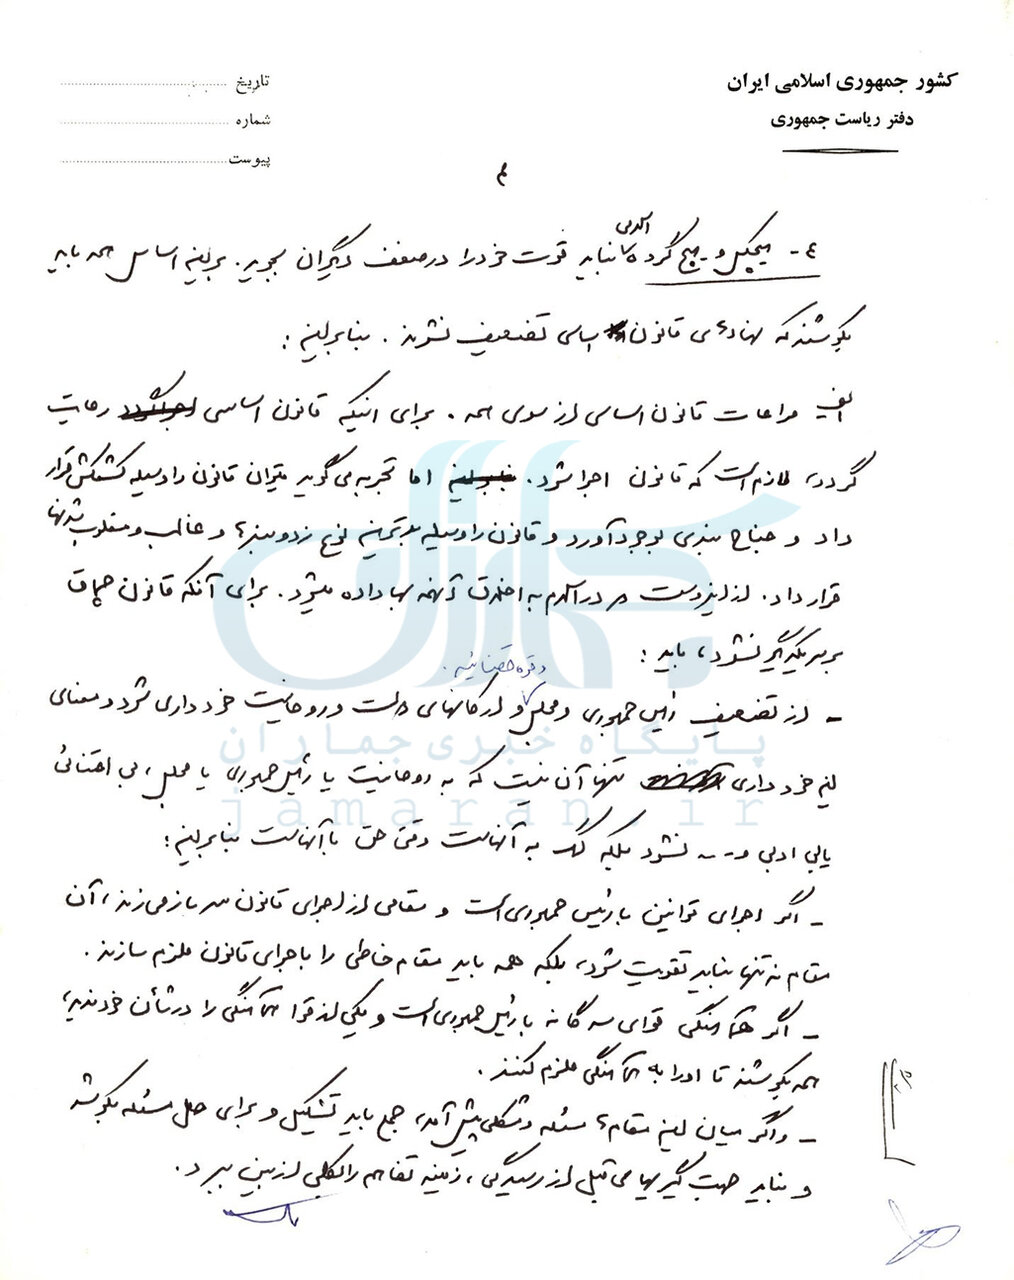 کشور جمهوری اسلامی ایران
دفتر ریاست جمهوری
تاریخ
شماره
پیوست
۴
٤- هیچکس و هیچ گروه اسلامی نباید قوت خود را در ضعف دیگران بجوید. بر این اساس همه باید
بکوشند که نهادهای قانون اساسی تضعیف نشوند. بنابراین:
الف مراعات قانون اساسی از سوی همه. برای اینکه قانون اساسی رعایت
گردد، لازم است که قانون اجرا شود. اما تجربه می گوید میتوان قانون را وسیله کشمکش قرار
داد و جناح بندی بوجود آورد و قانون را وسیله نوع زد و بندها و غالب و مغلوب شدنها
قرار داد. از اینروست در اسلام به اخلاق اینهمه بها داده میشود. برای آنکه قانون چماق
بر سر یکدیگر نشود، باید:
- از تضعیف رئیس جمهوری و مجلس و قوه قضائیه. و ارگانهای و روحانیت خودداری شود و معنای
این خودداری تنها آن نیست که به روحانیت یا رئیس جمهوری یا مجلس، بی اعتنائی
یا بی ادبی و-- نشود بلکه کمک به آنهاست وقتی حق با آنهاست بنابراین:
- اگر اجرای قوانین با رئیس جمهوری است و مقامی از اجرای قانون سر باز می زند، آن
مقام نه تنها نباید تقویت شود، بلکه همه باید مقام خاطی را باجرای قانون ملزم سازند.
- اگر هماهنگی قوای سه گانه با رئیس جمهوری است و یکی از قوا هماهنگی را در شأن خود ندید،
همه بکوشند تا او را به هماهنگی ملزم کنند.
- و اگر میان این مقامها مسئله و مشکلی پیش آمد، جمع باید تشکیل و برای حل مسئله بکوشد
و نباید جهت گیریهای قبل از رسیدگی، زمینه تفاهم را بکلی از بین ببرد.
پایگاه خبری جماران
jamaran.ir